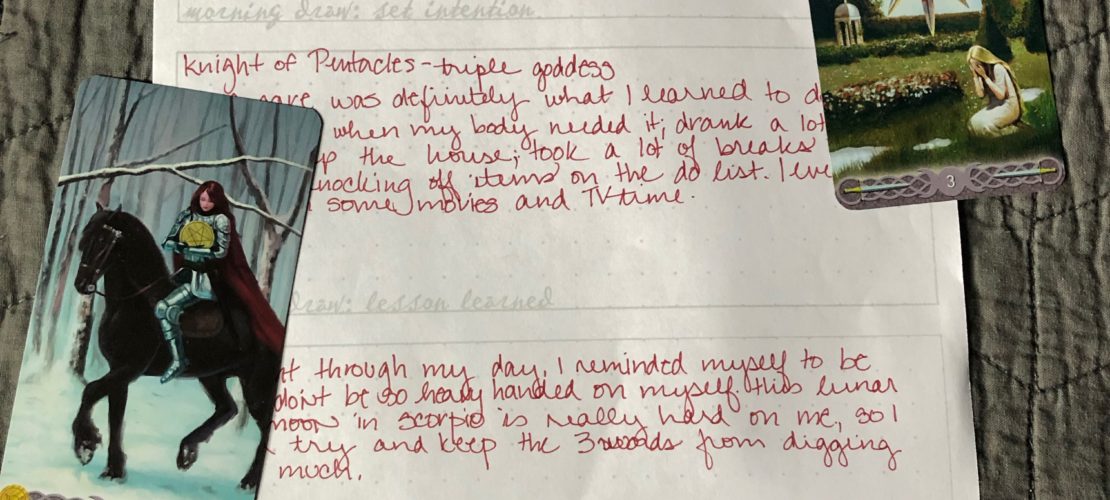 morning draw: set intention
Knight of Pentacles - triple goddess
care was definitely what I learned to d
when my body needed it; drank a lot
up the house; took a lot of breaks
knocking off items on the do list. I eve
some movies and TV time.
3
draw: lesson learned
through my day, I reminded myself to be
dont be so heavy handed on myself. this lunar
moon in scorpio is really hard on me, so I
try and keep the 3 swords from digging
much.